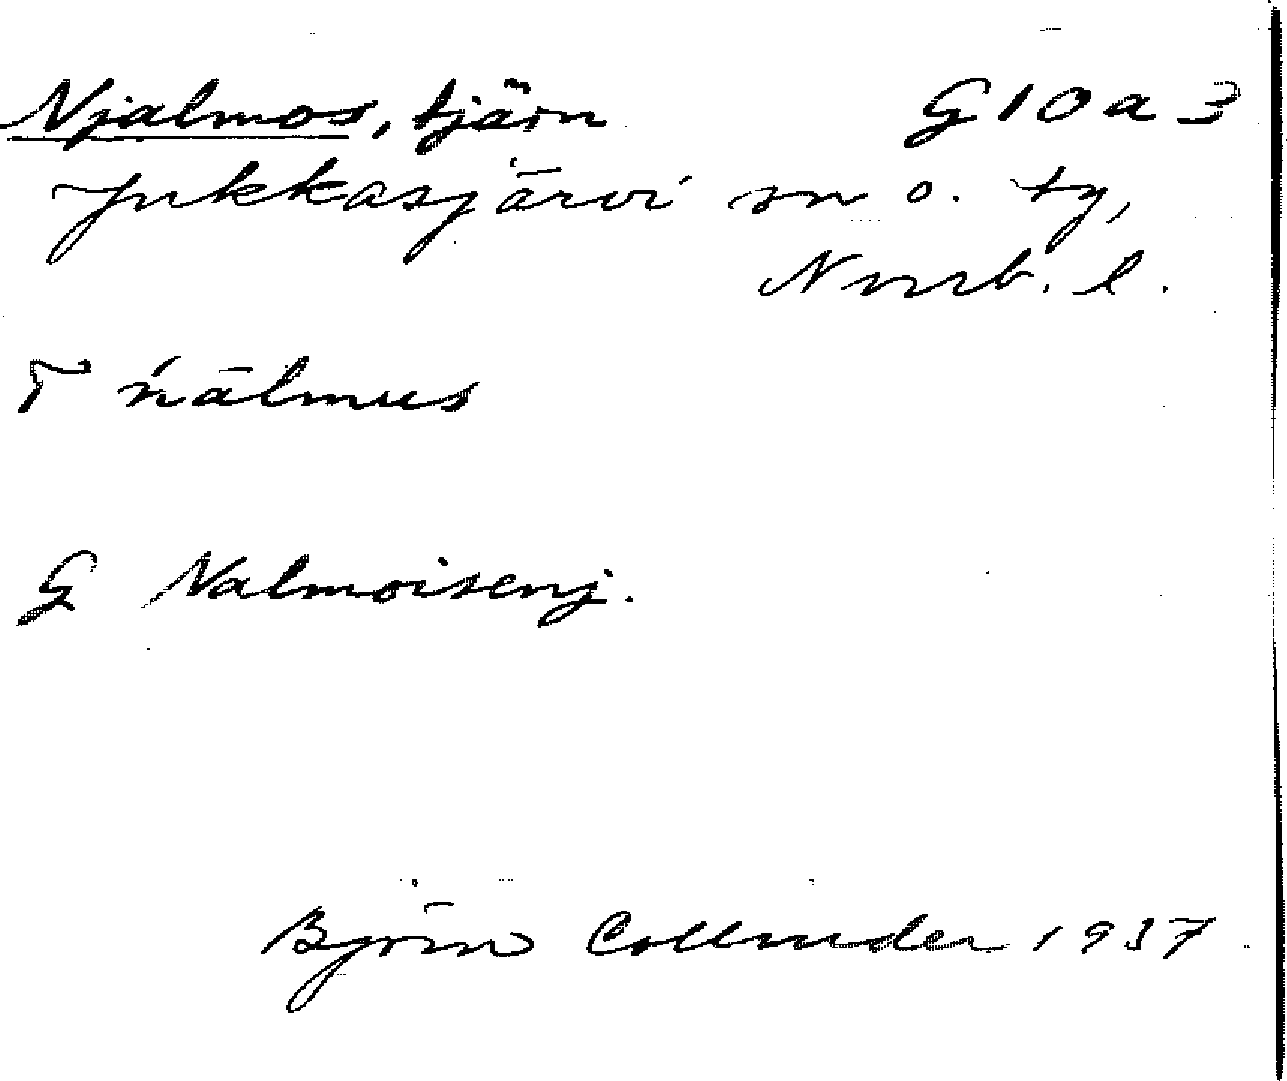 Njalmos, tjärn G10a3
Jukkasjärvi sn o. tg,
Norrb. l.
T ńālmus
G Nalmoisenj.
Björn Collinder 1937